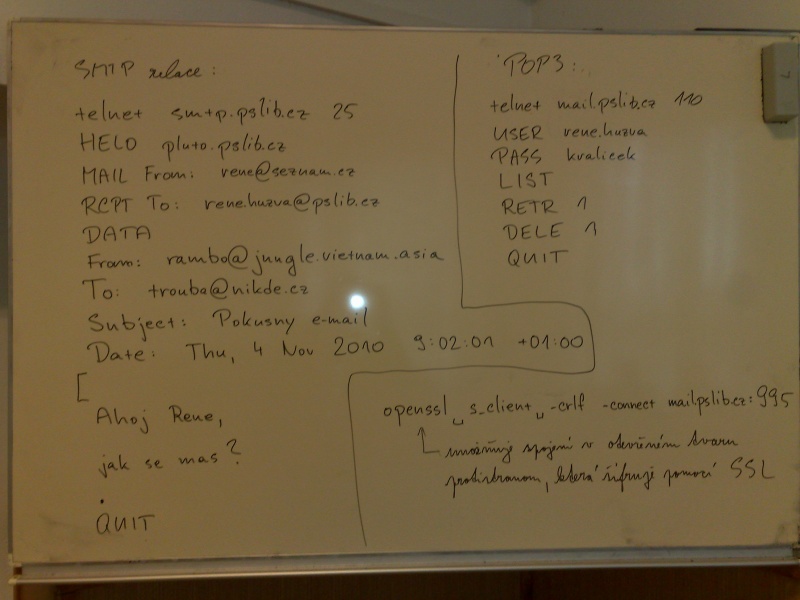 SMTP relace:
telnet smtp.pslib.cz 25
HELO pluto.pslib.cz
MAIL From: rene@seznam.cz
RCPT To: rene.huzva@pslib.cz
DATA
From: rambo@jungle.vietnam.asia
To: trouba@nikde.cz
Subject: Pokusny e-mail
Date: Thu, 4 Nov 2010 9:02:01 +01:00
[
Ahoj Rene,
jak se mas?
.
QUIT
POP3:
telnet mail.pslib.cz 110
USER rene.huzva
PASS kvalicek
LIST
RETR 1
DELE 1
QUIT
openssl␣s_client␣-crlf -connect mail.pslib.cz:995
umožňuje spojení v otevřeném tvaru
protistranou, která šifruje pomocí SSL